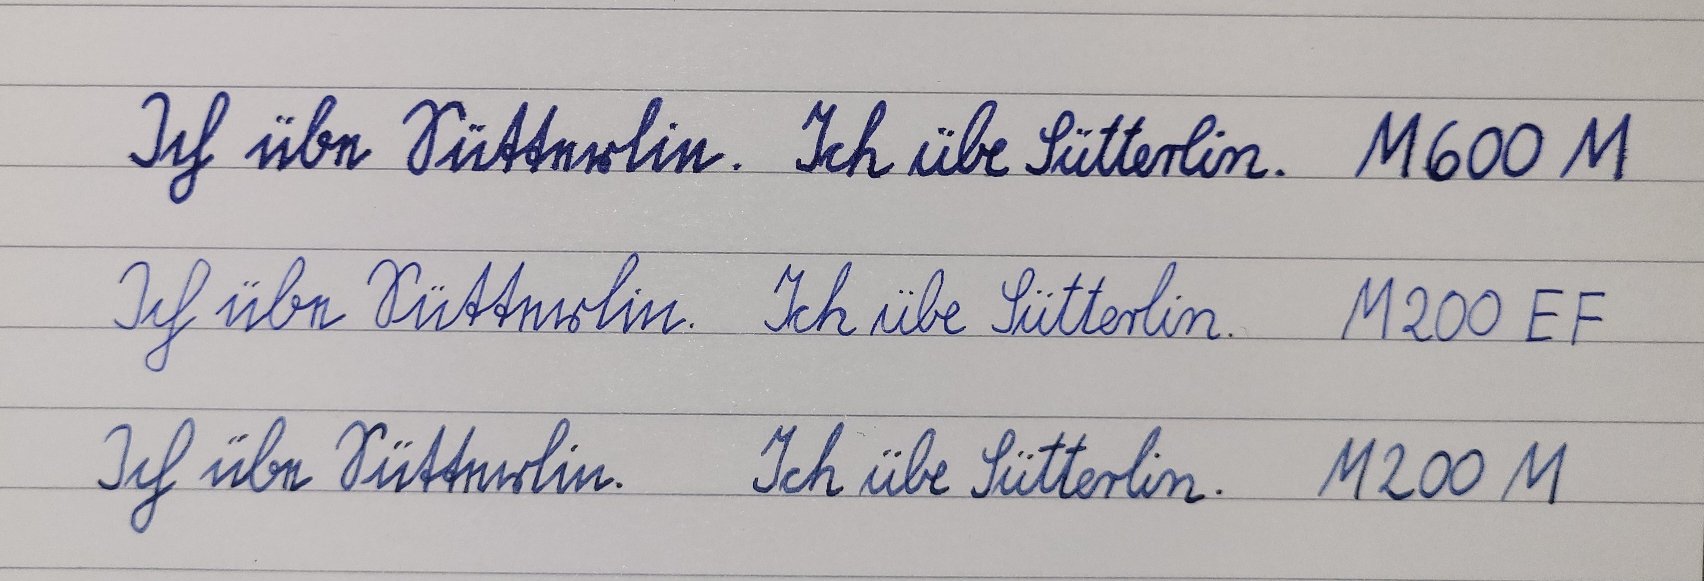 Ich übe Sütterlin. Ich übe Sütterlin. M600 M
Ich übe Sütterlin. Ich übe Sütterlin. M200 EF
Ich übe Sütterlin. Ich übe Sütterlin. M200 M